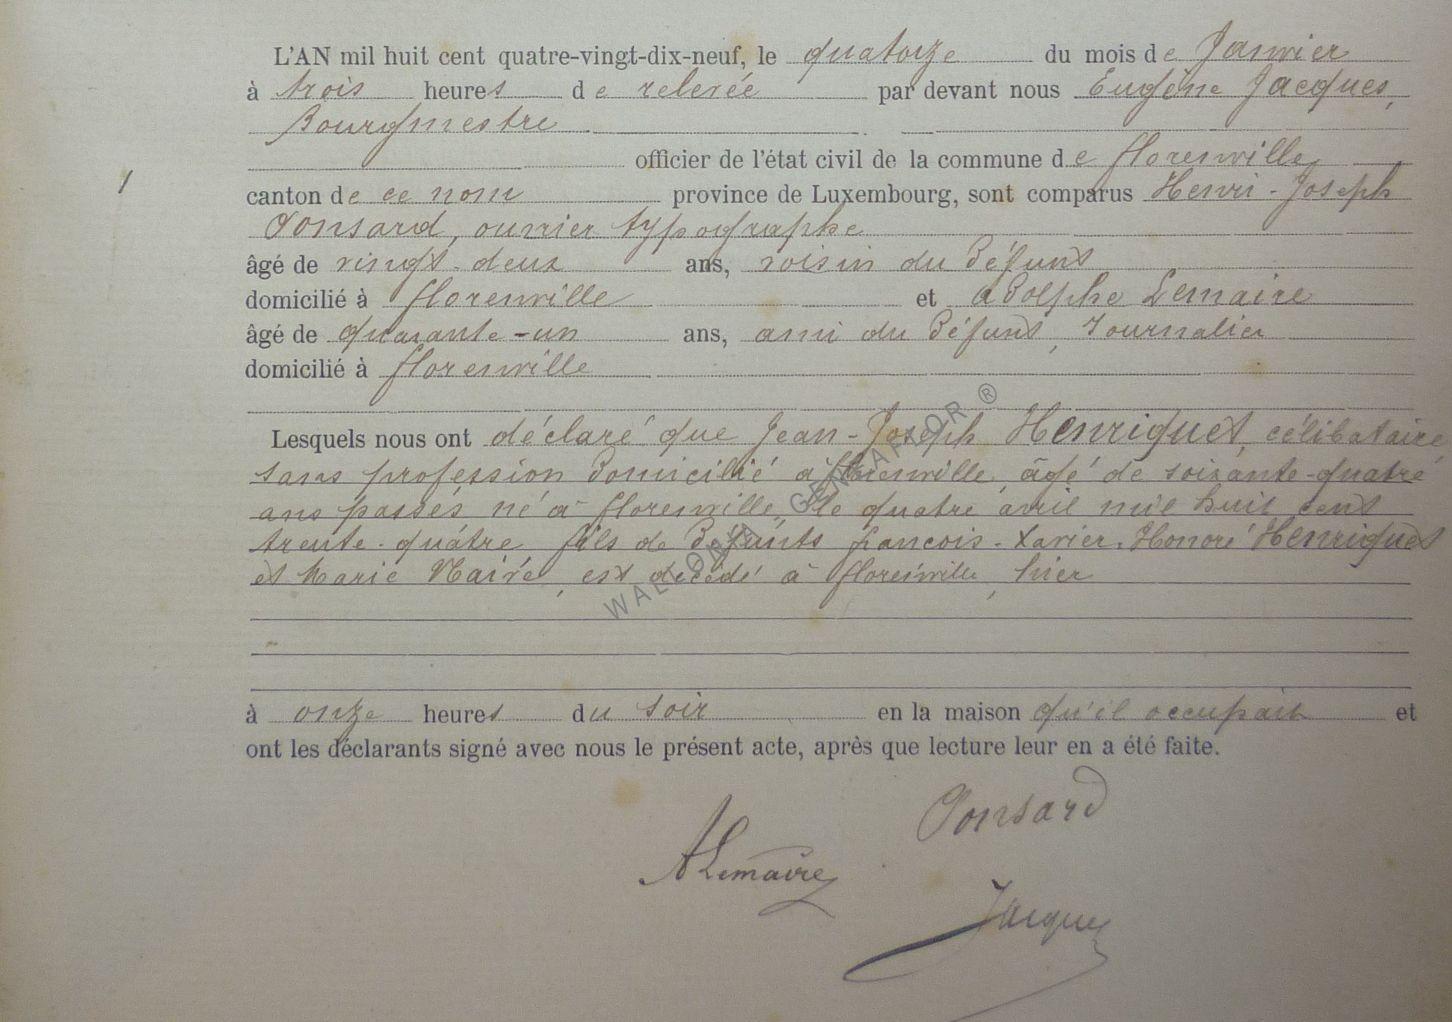 L'AN mil huit cent quatre-vingt-dix-neuf, le quatorze du mois de Janvier
à trois heures de relevée par devant nous Eugène Jacques,
Bourgmestre
officier de l'état civil de la commune de florenville
canton de ce nom province de Luxembourg, sont comparus Henri-Joseph
Ponsard, ouvrier typographe
âgé de vingt-deux ans, voisin du Défunt
domicilié à florenville et Adolphe Lemaire
âgé de quarante-un ans, ami du Défunt, Journalier
domicilié à florenville
Lesquels nous ont déclaré que Jean-Joseph Henriquet, célibataire,
sans profession Domicilié à florenville, âgé de soixante-quatre
ans passés, né à florenville, le quatre avril mil huit cent
trente-quatre, fils de Défunts francois-Xavier-Honoré Henriquet
et Marie est décédé à florenville, hier
à onze heures du soir en la maison qu'il occupait et
ont les déclarants signé avec nous le présent acte, après que lecture leur en a été faite.
Ponsard
ALemaire
Jacques
WALLONIA GENEAFLOR ®